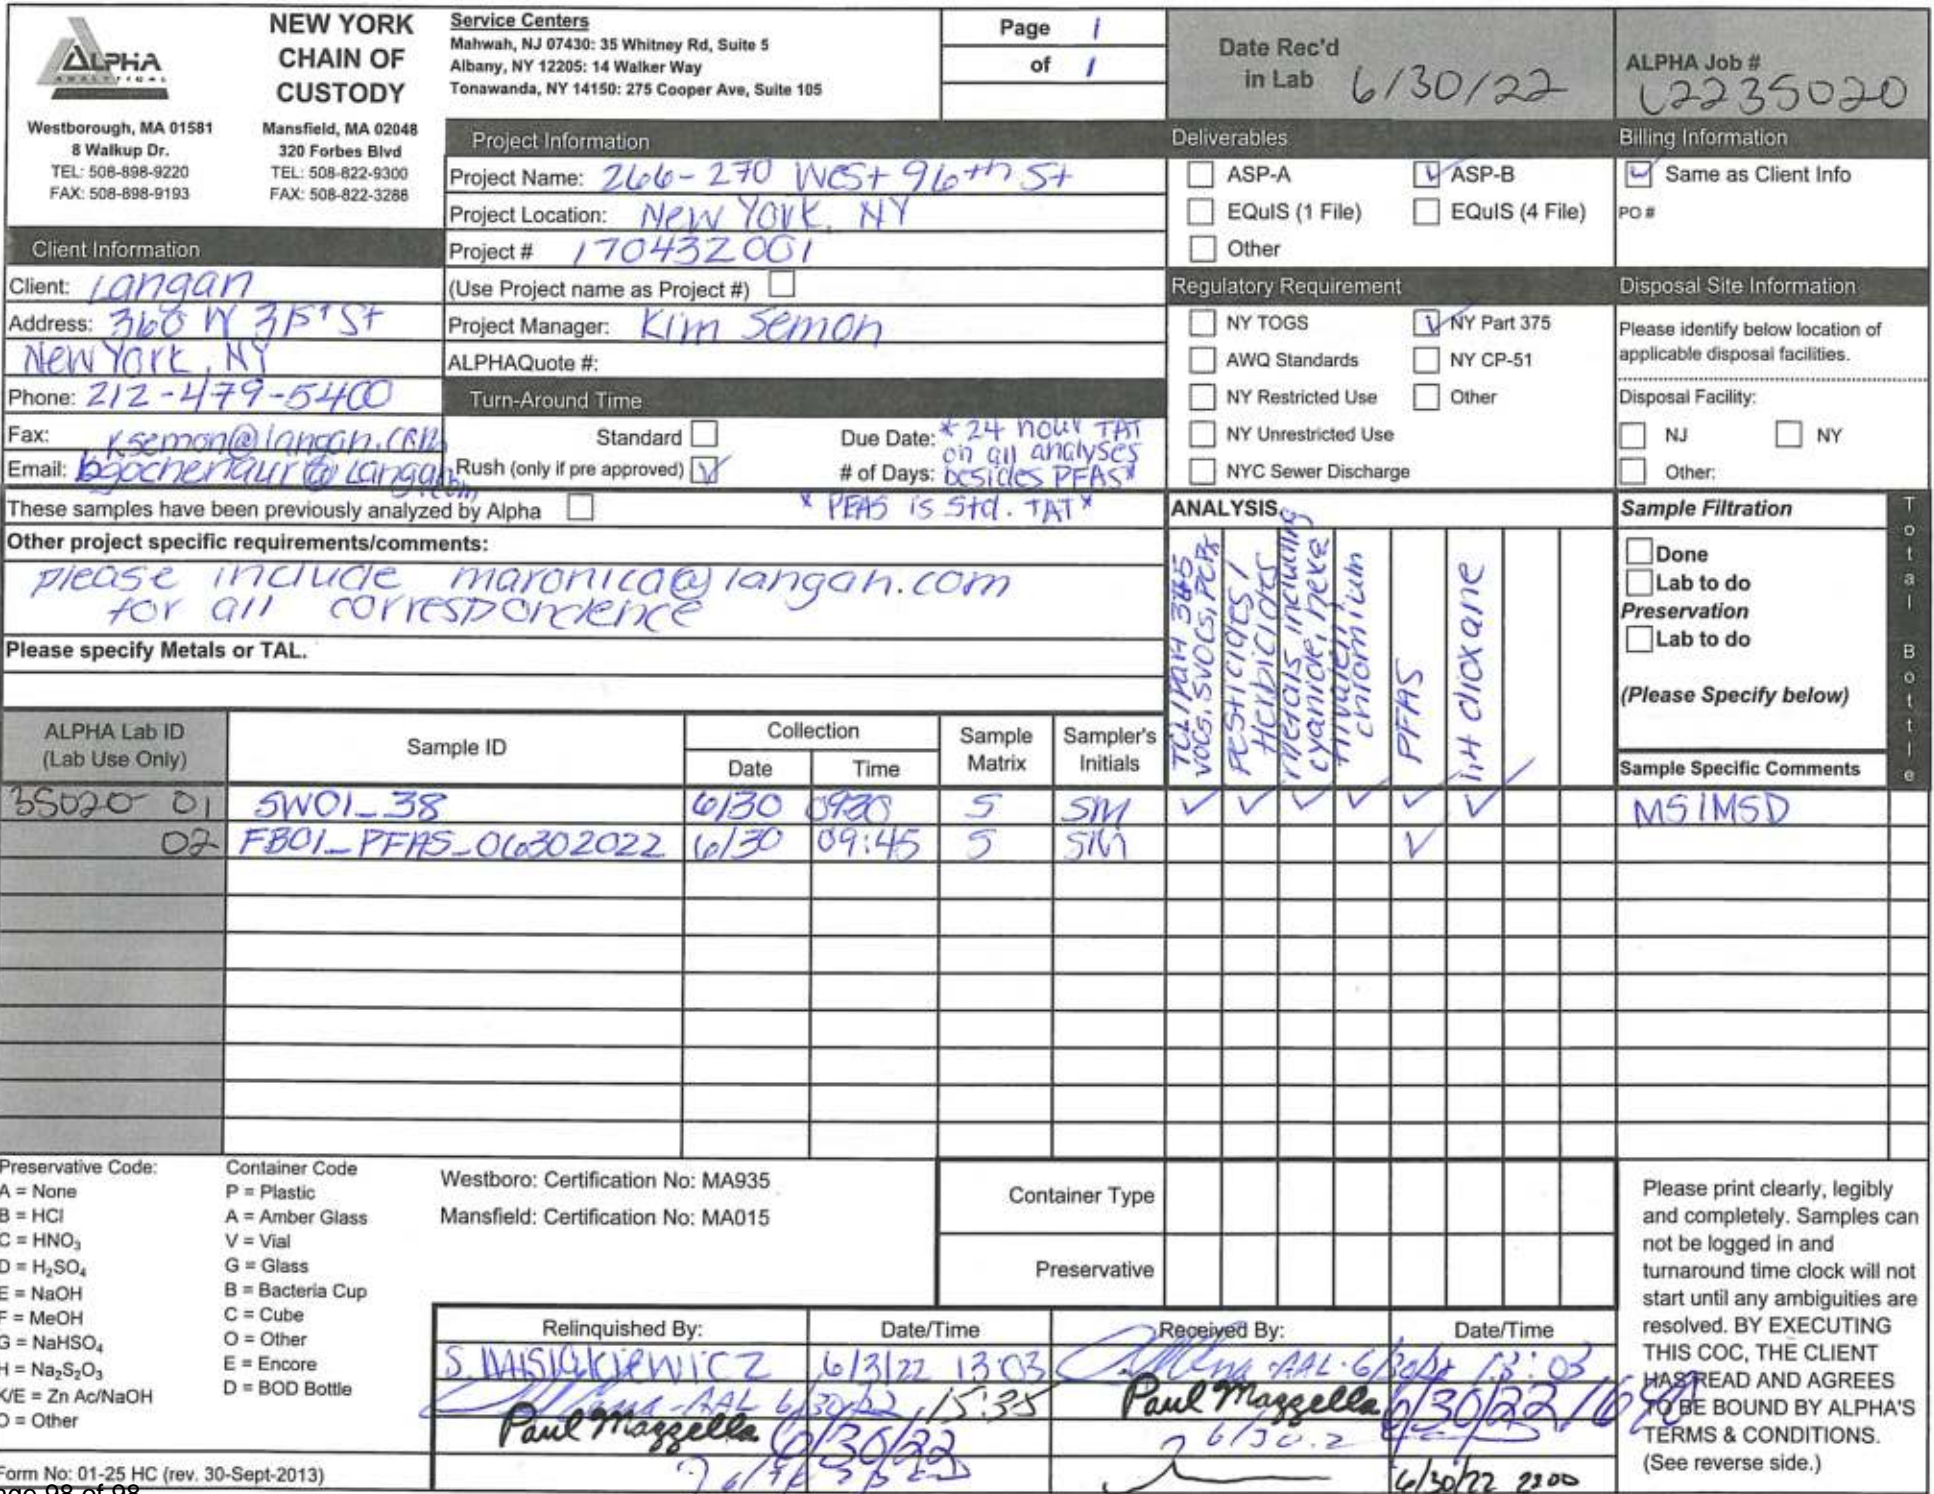 ALPHA
ANALYTICAL
NEW YORK
CHAIN OF
CUSTODY
Westborough, MA 01581
8 Walkup Dr.
TEL: 508-898-9220
FAX: 508-898-9193
Mansfield, MA 02048
320 Forbes Blvd
TEL: 508-822-9300
FAX: 508-822-3288
Service Centers
Mahwah, NJ 07430: 35 Whitney Rd, Suite 5
Albany, NY 12205: 14 Walker Way
Tonawanda, NY 14150: 275 Cooper Ave, Suite 105
Page 1
of 1
Date Rec'd
in Lab 6/30/22
ALPHA Job #
L2235020
Client Information
Client: Langan
Address: 360 W 31st St
New York, NY
Phone: 212-479-5400
Fax: ksemon@langan.com
Email:
Project Information
Project Name: 266-270 West 96th St
Project Location: New York, NY
Project # 170432001
(Use Project name as Project #)
Project Manager: Kim Semon
ALPHAQuote #:
Turn-Around Time
Standard
Rush (only if pre approved)
Due Date:
# of Days:
* 24 hour TAT
on all analyses
besides PFAS*
* PFAS is Std. TAT*
Deliverables
ASP-A
ASP-B
EQuIS (1 File)
EQuIS (4 File)
Other
Regulatory Requirement
NY TOGS
NY Part 375
AWQ Standards
NY CP-51
NY Restricted Use
Other
NY Unrestricted Use
NYC Sewer Discharge
Billing Information
Same as Client Info
PO #
Disposal Site Information
Please identify below location of
applicable disposal facilities.
Disposal Facility:
NJ
NY
Other:
These samples have been previously analyzed by Alpha
Other project specific requirements/comments:
please include maronica@langan.com
for all correspondence
Please specify Metals or TAL.
ANALYSIS
VOCs, SVOCs, PCBs
Pesticides/
Herbicides
Metals including
cyanide, hexa
trivalent
chromium
PFAS
1,4 dioxane
Sample Filtration
Done
Lab to do
Preservation
Lab to do
(Please Specify below)
Total Bottle
ALPHA Lab ID
(Lab Use Only)
Sample ID
Collection
Date
Time
Sample
Matrix
Sampler's
Initials
Sample Specific Comments
35020-01 SW01_38 6/30 0930 S SM MS/MSD
02 FB01_PFAS_06302022 6/30 09:45 S SM
Preservative Code:
A = None
B = HCl
C = HNO3
D = H2SO4
E = NaOH
F = MeOH
G = NaHSO4
H = Na2S2O3
K/E = Zn Ac/NaOH
O = Other
Container Code
P = Plastic
A = Amber Glass
V = Vial
G = Glass
B = Bacteria Cup
C = Cube
O = Other
E = Encore
D = BOD Bottle
Westboro: Certification No: MA935
Mansfield: Certification No: MA015
Container Type
Preservative
Relinquished By:
Date/Time
Received By:
Date/Time
6/3/22 13:03
AAL 6/30/22 13:03
AAL 6/30/22 15:35
Paul Mazzella 6/30/22
Paul Mazzella 6/30/22
6/30/22 2200
Please print clearly, legibly
and completely. Samples can
not be logged in and
turnaround time clock will not
start until any ambiguities are
resolved. BY EXECUTING
THIS COC, THE CLIENT
HAS READ AND AGREES
TO BE BOUND BY ALPHA'S
TERMS & CONDITIONS.
(See reverse side.)
Form No: 01-25 HC (rev. 30-Sept-2013)
98 of 98